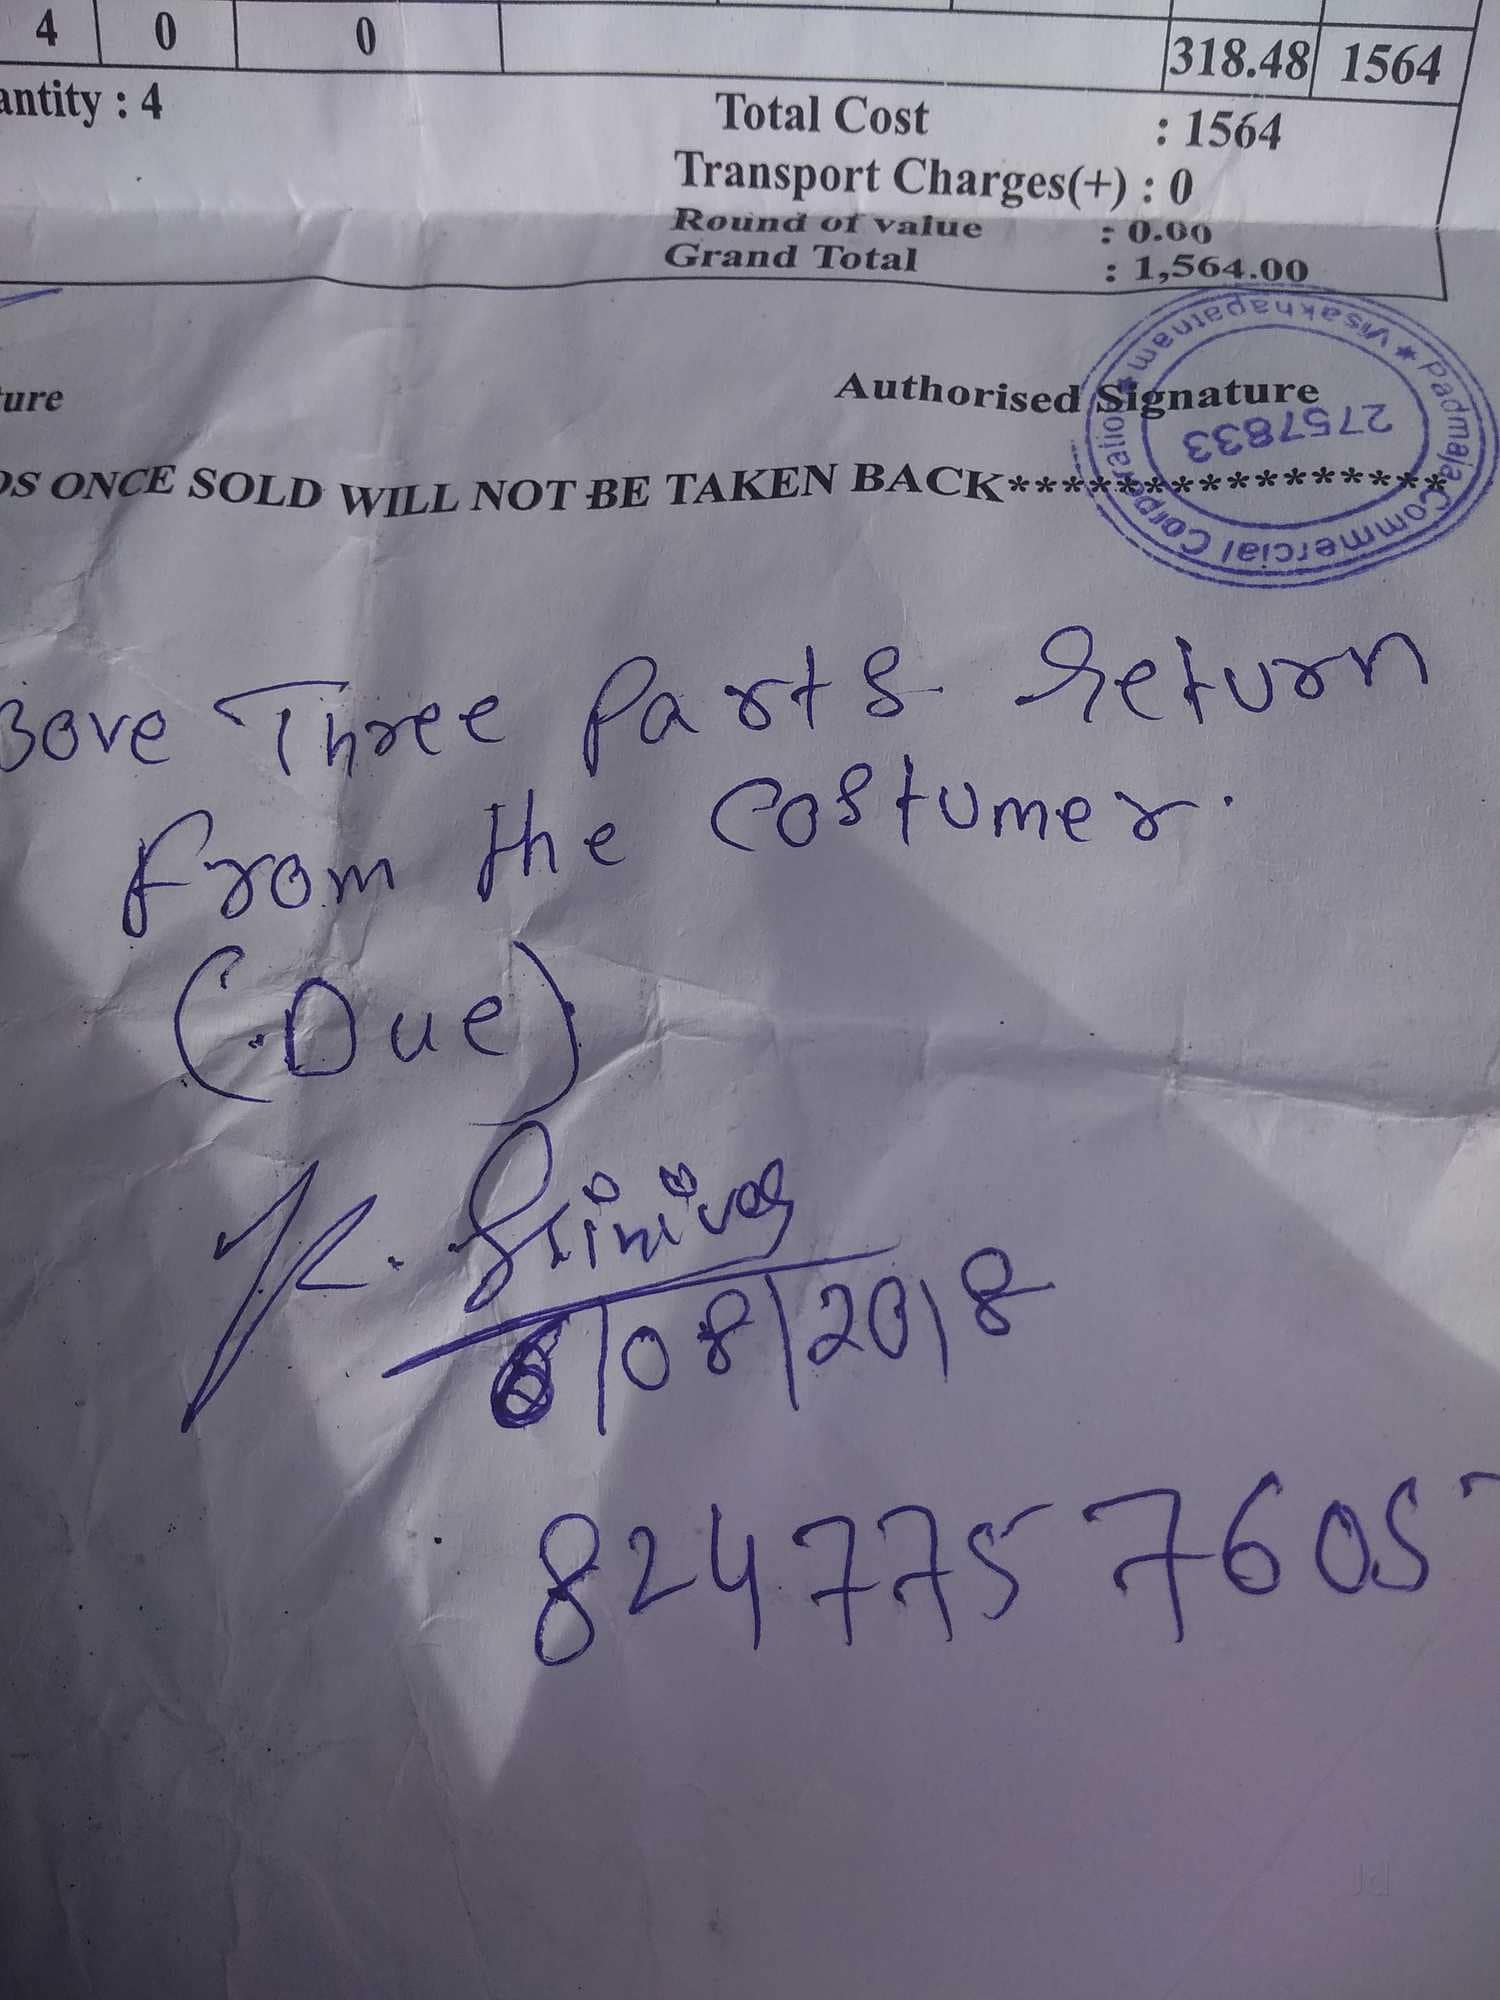 4 0 0 318.48 1564
antity : 4
Total Cost : 1564
Transport Charges(+) : 0
Round of value : 0.00
Grand Total : 1,564.00
ure
Authorised Signature
Padmaja Commercial Corporation ★ Visakhapatnam ★
2757833
DS ONCE SOLD WILL NOT BE TAKEN BACK****************
Bove Three Parts return
From the Costumer.
(Due)
K. Srinivas
6/08/2018
8247757605
Jd